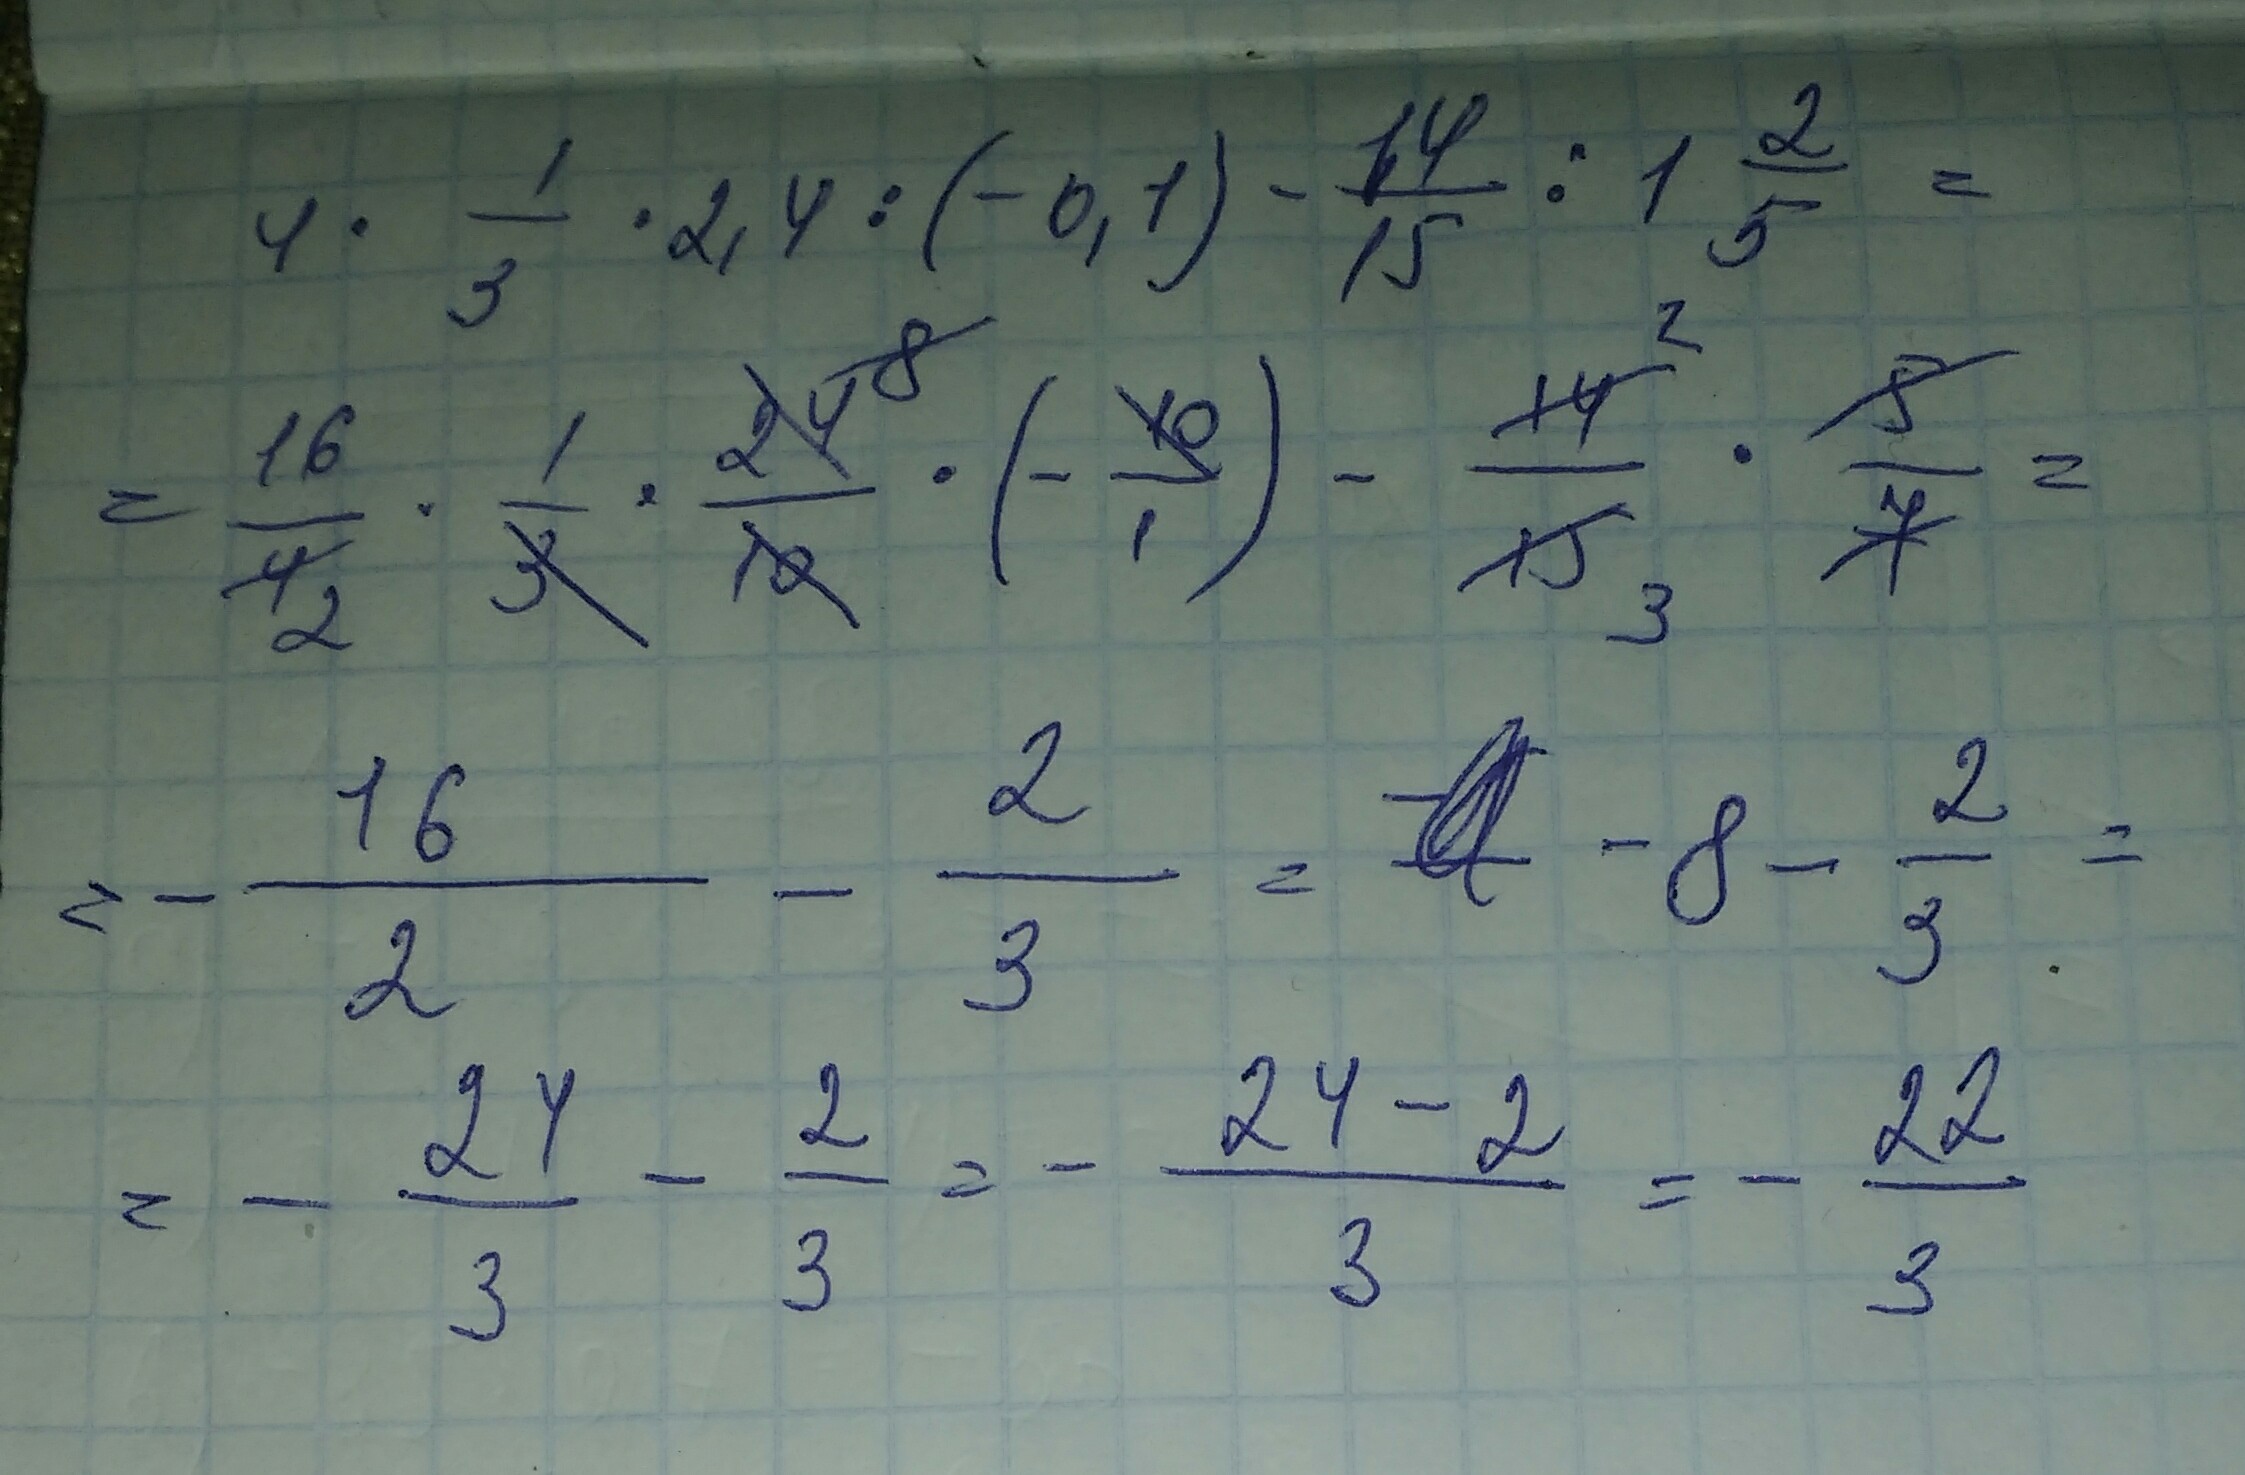 4 · 1/3 · 2,4 : (-0,1) - 14/15 : 1 2/5 =
= 16/4 2 · 1/3 · 24 8/10 · (- 10/1) - 14 2/15 3 · 5/7 =
= - 16/2 - 2/3 = - 8 - 2/3 =
= - 24/3 - 2/3 = - 24-2/3 = - 22/3